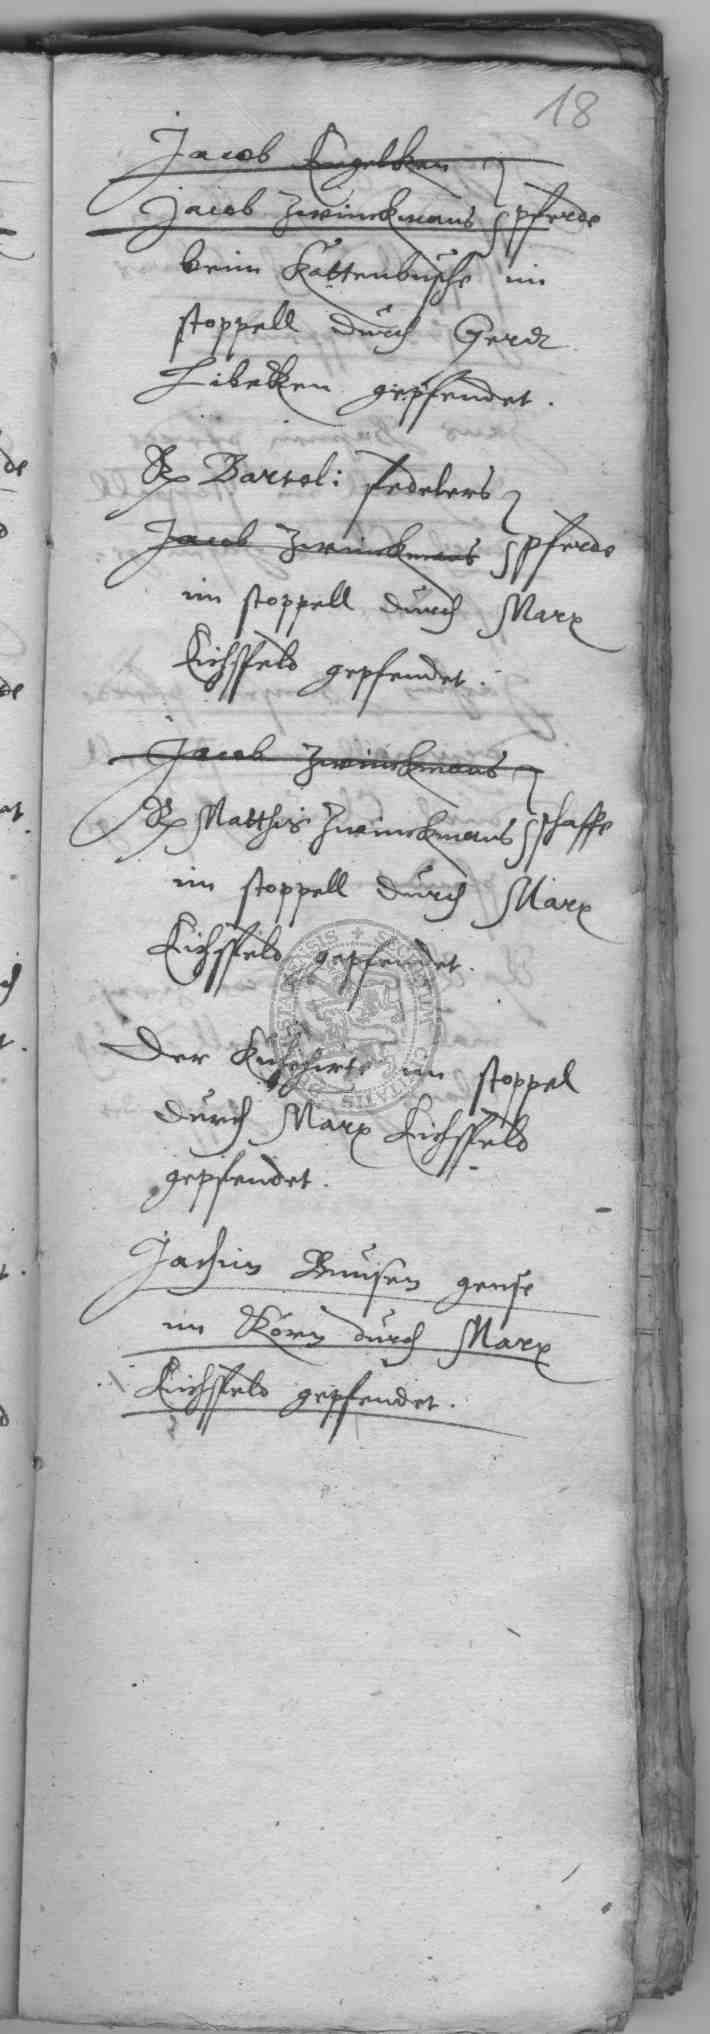 18
Jacob Engelken
Jacob Zwinckmans pferde
beim Kattenbusche im
stoppell durch Gerdt
Libekken gepfendet.
Rp Bartol: fedelers
Jacob Zwinckmans pferde
im stoppell durch Marx
Eichsfeld gepfendet.
Jacob Zwinckmans
Rp Matthis Zwinckmans schaffe
im stoppell durch Marx
Eichsfeld gepfendet.
Der Kuhehirte im stoppel
durch Marx Eichsfeld
gepfendet.
Jochim gense
im Korn durch Marx
Eichsfeld gepfendet.